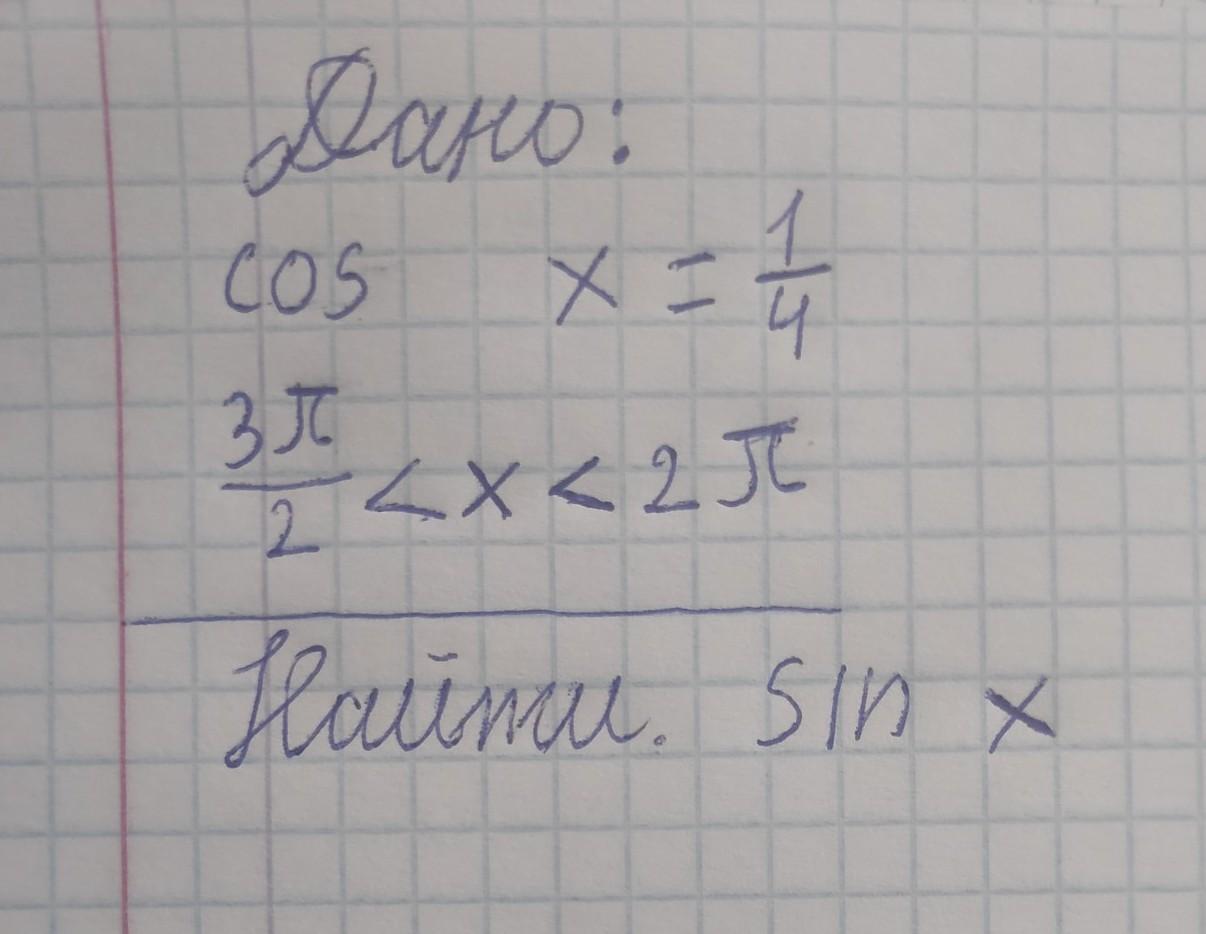 Дано:
cos x = 1/4
3π/2 < x < 2π
Найти. sin x